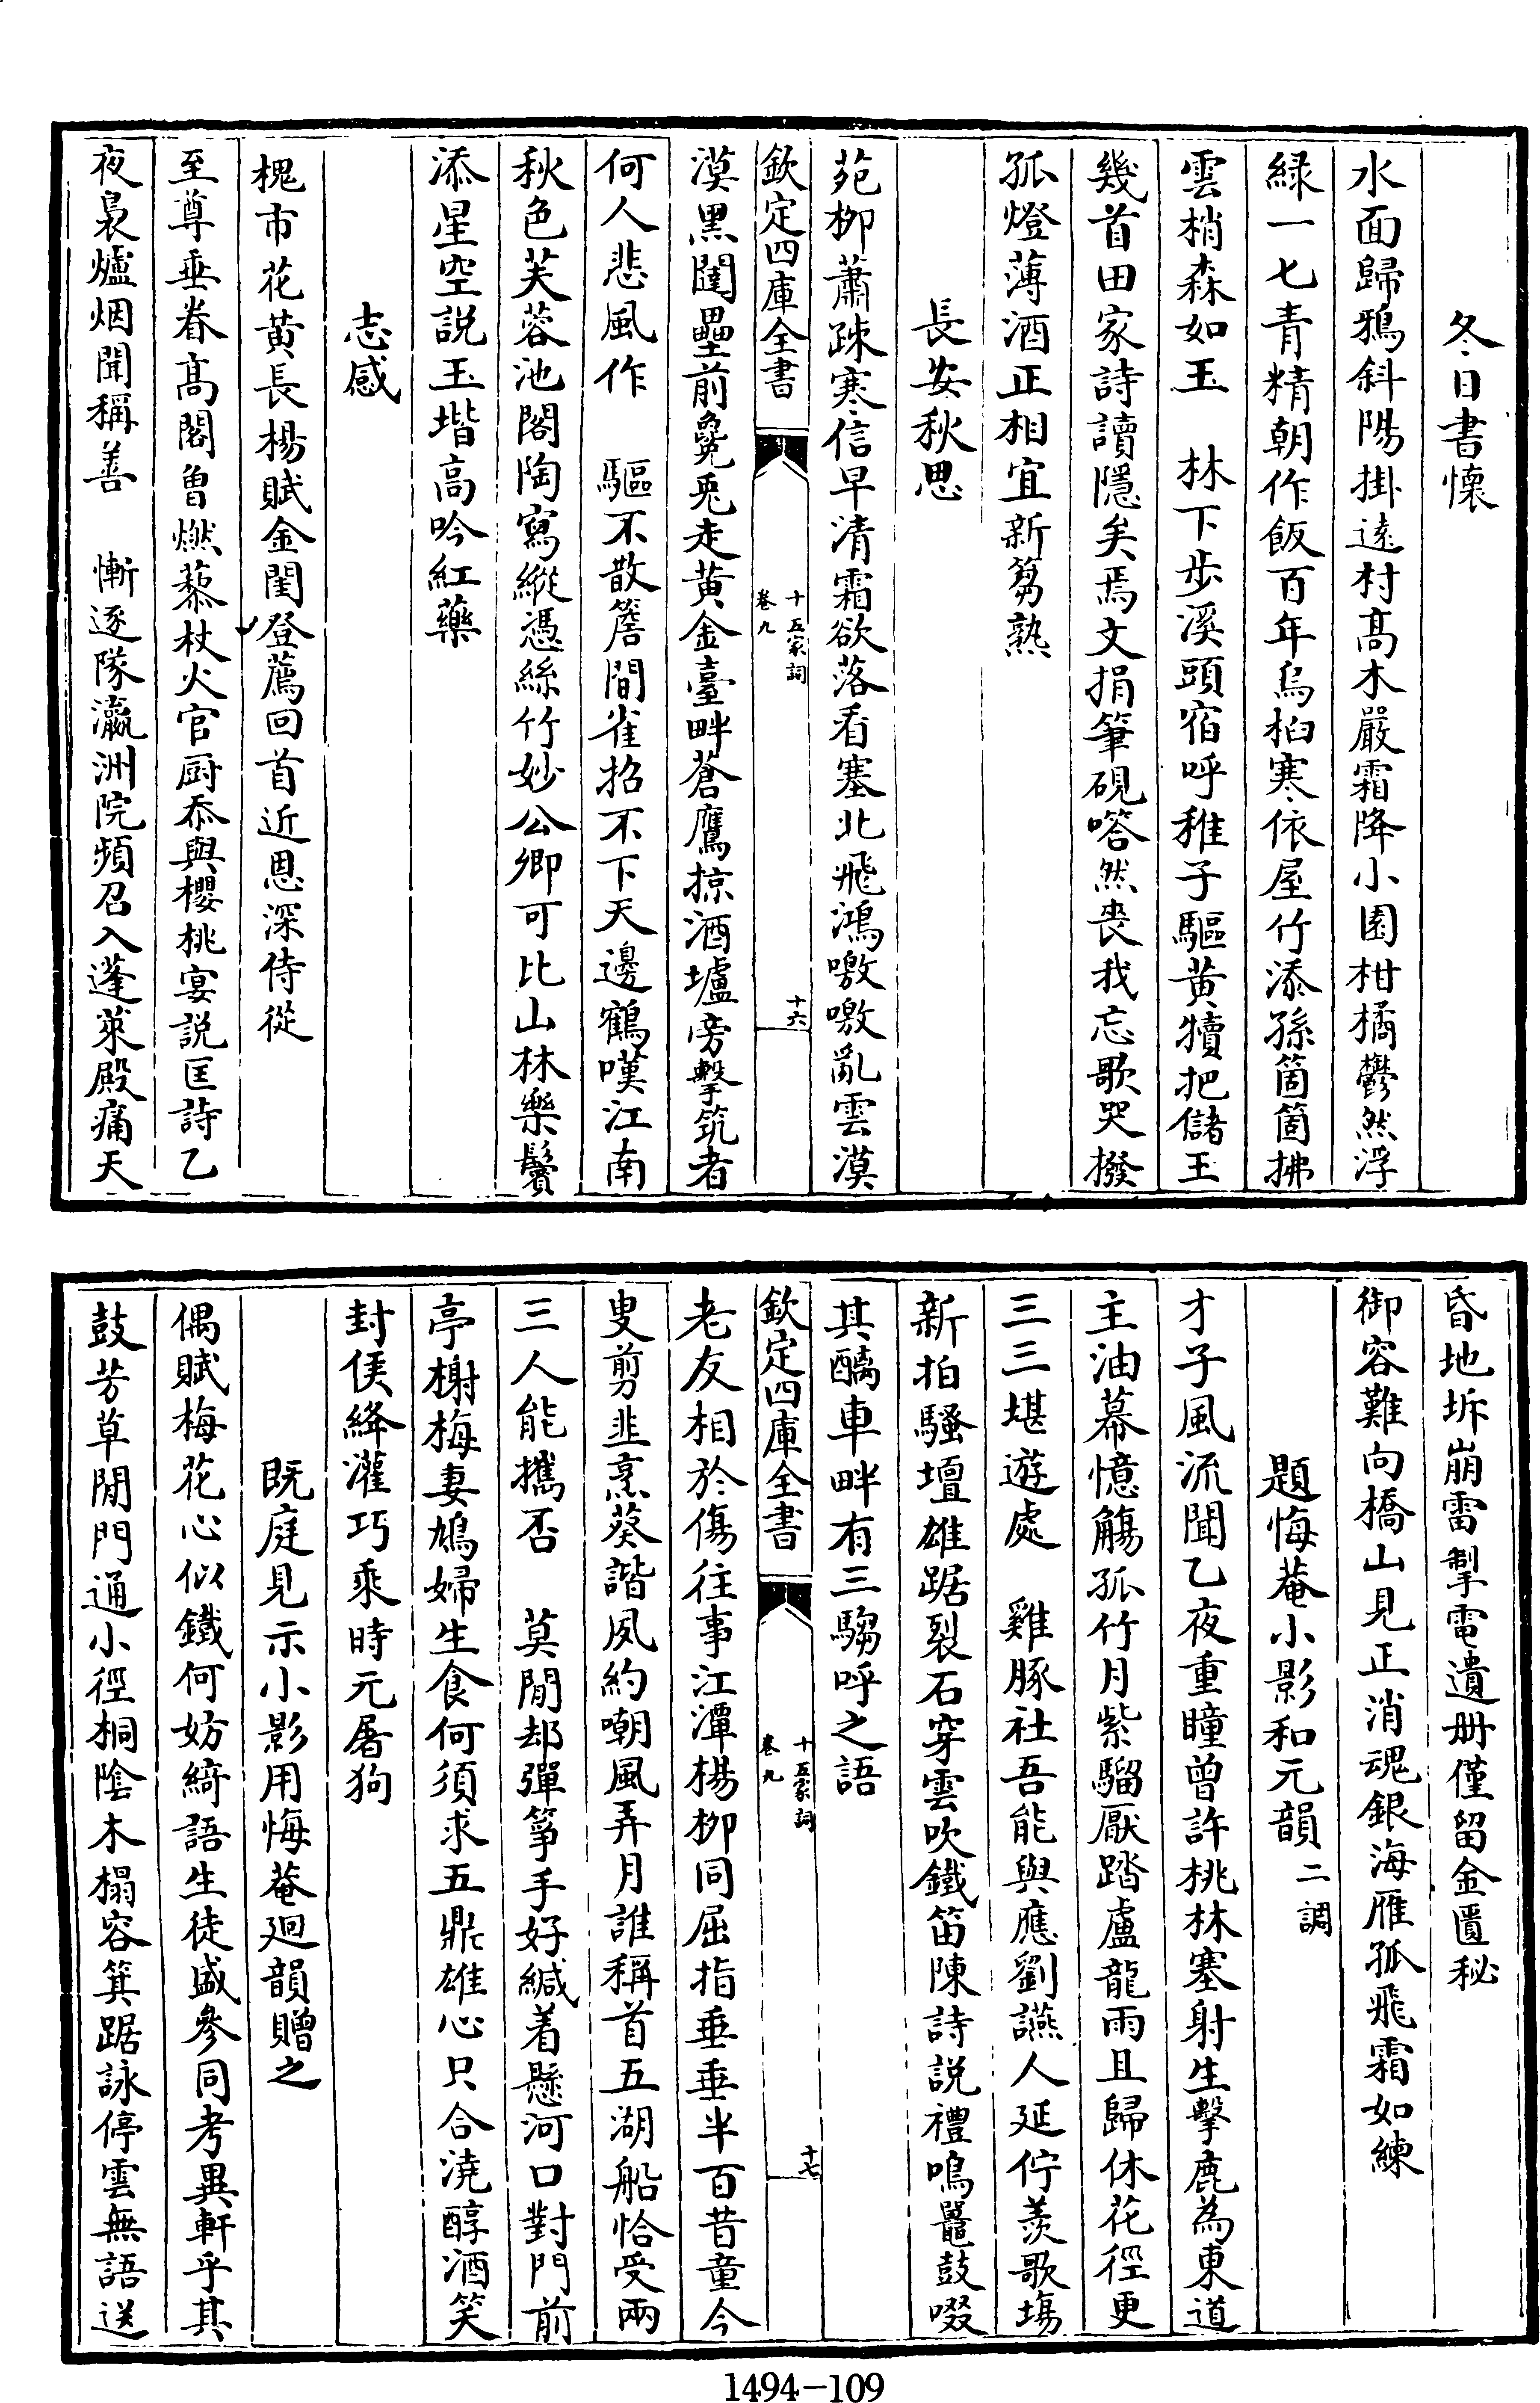 冬日書懷
水面歸鴉斜陽掛遠村髙木嚴霜降小園柑橘鬱然浮
緑一七青精朝作飯百年烏桕寒依屋竹添孫箇箇拂
雲梢森如玉　林下步溪頭宿呼稚子驅黄犢把儲王
幾首田家詩讀隱矣焉文捐筆硯嗒然喪我忘歌哭撥
孤燈薄酒正相宜新芻熟
長安秋思
苑栁蕭疎寒信早清霜欲落看塞北飛鴻嗷嗷亂雲漠
欽定四庫全書
十五家詞
卷九
十六
漠黒闥壘前㕙兎走黄金臺畔蒼鷹掠酒壚旁擊筑者
何人悲風作　驅不散簷間雀招不下天邊鶴嘆江南
秋色芙蓉池閣陶寫縱憑絲竹妙公卿可比山林樂鬢
添星空説玉堦高吟紅藥
志感
槐市花黄長楊賦金閨登薦回首近恩深侍從
至尊垂眷髙閣曽燃藜杖火官厨忝與櫻桃宴説匡詩乙
夜裊爐烟聞稱善　慚逐隊瀛洲院頻召入蓬萊殿痛天
昏地坼崩雷掣電遺册僅留金匱秘
御容難向橋山見正消魂銀海雁孤飛霜如練
題悔菴小影和元韻二調
才子風流聞乙夜重瞳曾許桃林塞射生擊鹿為東道
主油幕憶觴孤竹月紫騮厭踏盧龍雨且歸休花徑更
三三堪遊處　雞豚社吾能與應劉讌人延佇羨歌塲
新拍騷壇雄踞裂石穿雲吹鐵笛陳詩説禮鳴鼉鼓啜
其醨車畔有三騶呼之語
欽定四庫全書
十五家詞
卷九
十七
老友相於傷往事江潭楊栁同屈指垂垂半百昔童今
叟剪韭烹葵諧夙約嘲風弄月誰稱首五湖船恰受兩
三人能攜否　莫閒却彈筝手好緘着懸河口對門前
亭榭梅妻鳩婦生食何須求五鼎雄心只合澆醇酒笑
封侯絳灌巧乘時元屠狗
既庭見示小影用悔菴廻韻贈之
偶賦梅花心似鐵何妨綺語生徒盛參同考異軒乎其
鼓芳草閒門通小徑桐陰木榻容箕踞詠停雲無語送
1494-109